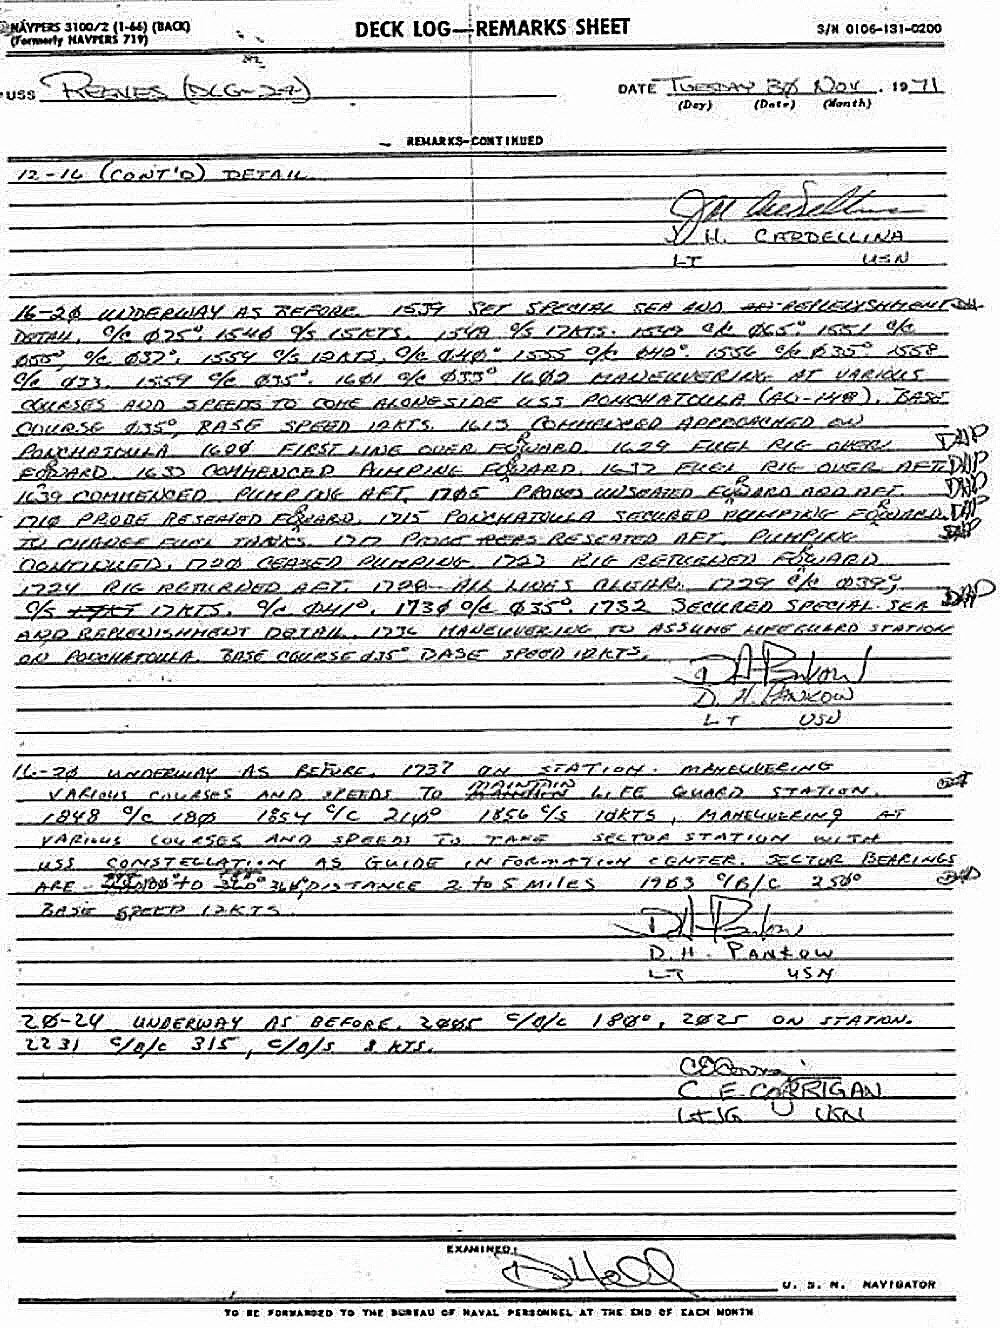 NAVPERS 3100/2 (1-66) (BACK)
(Formerly NAVPERS 719)
DECK LOG—REMARKS SHEET
S/N 0106-131-0200
USS REEVES (DLG-24)
DATE TUESDAY 30 NOV. 1971
(Day) (Date) (Month)
REMARKS-CONTINUED
12-16 (CONT'D) DETAIL
J. H. CARDELLINA
LT USN
16-20 UNDERWAY AS BEFORE. 1539 SET SPECIAL SEA AND REPLENISHMENT
DETAIL. C/C Ø75°. 1540 C/S 15KTS. 1549 C/S 12KTS. 1549 C/C Ø65° 1551 C/C
Ø55°, C/C Ø37°, 1554 C/S 12KTS, C/C Ø40° 1555 C/C Ø42°. 1556 C/C Ø35° 1558
C/C Ø33. 1559 C/C Ø35°. 1601 C/C Ø33° 1602 MANEUVERING AT VARIOUS
COURSES AND SPEEDS TO COME ALONGSIDE USS PONCHATOULA (AO-148). BASE
COURSE Ø35°, BASE SPEED 12KTS. 1613 COMMENCED APPROACHED ON
PONCHATOULA. FIRST LINE OVER FORWARD. 1629 FUEL RIG OVER
FORWARD. 1637 COMMENCED PUMPING FORWARD. 1637 FUEL RIG OVER AFT. DHP
1639 COMMENCED PUMPING AFT. 1705 PROBES UNSEATED FORWARD AND AFT. DHP
1710 PROBE RESEATED FORWARD. 1715 PONCHATOULA SECURED PUMPING FORWARD DHP
TO CHANGE FUEL TANKS. 1717 PROBE RESEATED AFT. PUMPING DHP
CONTINUED. 1720 CEASED PUMPING. 1723 RIG RETURNED FORWARD
1724 RIG RETURNED AFT. 1728 ALL LINES CLEAR. 1729 C/C Ø39°,
C/S 17KTS. C/C Ø41°. 1730 C/C Ø35° 1732 SECURED SPECIAL SEA DHP
AND REPLENISHMENT DETAIL. 1736 MANEUVERING TO ASSUME LIFEGUARD STATION
ON PONCHATOULA. BASE COURSE Ø35° BASE SPEED 12KTS.
D. H. PANKOW
LT USN
16-20 UNDERWAY AS BEFORE. 1737 ON STATION. MANEUVERING
VARIOUS COURSES AND SPEEDS TO MAINTAIN LIFE GUARD STATION.
1848 C/C 180 1854 C/C 210° 1856 C/S 10KTS, MANEUVERING AT
VARIOUS COURSES AND SPEEDS TO TAKE SECTOR STATION WITH
USS CONSTELLATION AS GUIDE IN FORMATION CENTER. SECTOR BEARINGS
ARE 180° TO DISTANCE 2 to 5 MILES 1903 C/B/C 250°
BASE SPEED 12KTS.
D. H. PANKOW
LT USN
20-24 UNDERWAY AS BEFORE. 2005 C/B/C 180°, 2025 ON STATION.
2231 C/B/C 315, C/B/S 8 KTS.
C. E. CORRIGAN
LTJG USN
EXAMINED:
U. S. N. NAVIGATOR
TO BE FORWARDED TO THE BUREAU OF NAVAL PERSONNEL AT THE END OF EACH MONTH